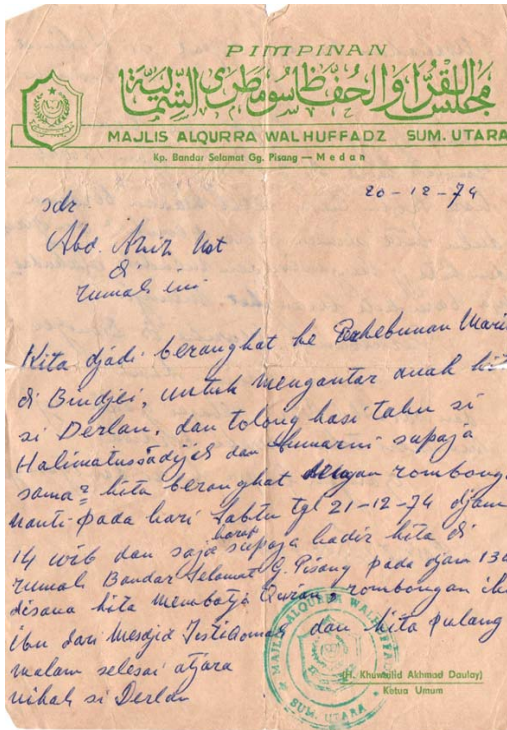 PIMPINAN
مجلس القراء والحفاظ سومطرى الشمالية
MAJLIS ALQURRA WAL HUFFADZ SUM. UTARA
Kp. Bandar Selamat Gg. Pisang — Medan
20-12-74
sdr
Abd. Aziz
di
rumah ini
Kita djadi berangkat ke Perkebunan
di Bindjei, untuk mengantar anak
si Derlan, dan tolong kasi tahu si
Halimatussadijah dan supaja
sama2 kita berangkat dengan
nanti pada hari Sabtu tgl 21-12-74 djam
14 wib dan saja harap supaja hadir kita di
rumah Bandar Selamat G. Pisang pada djam
disana kita membatja Quran, rombongan
ibu dari Mesdjid Istiqomah dan kita pulang
malam selesai atjara
nikah si Derlan
MAJLIS ALQURRA WAL HUFFADZ
SUM. UTARA
(H. Khuwailid Akhmad Daulay)
Ketua Umum